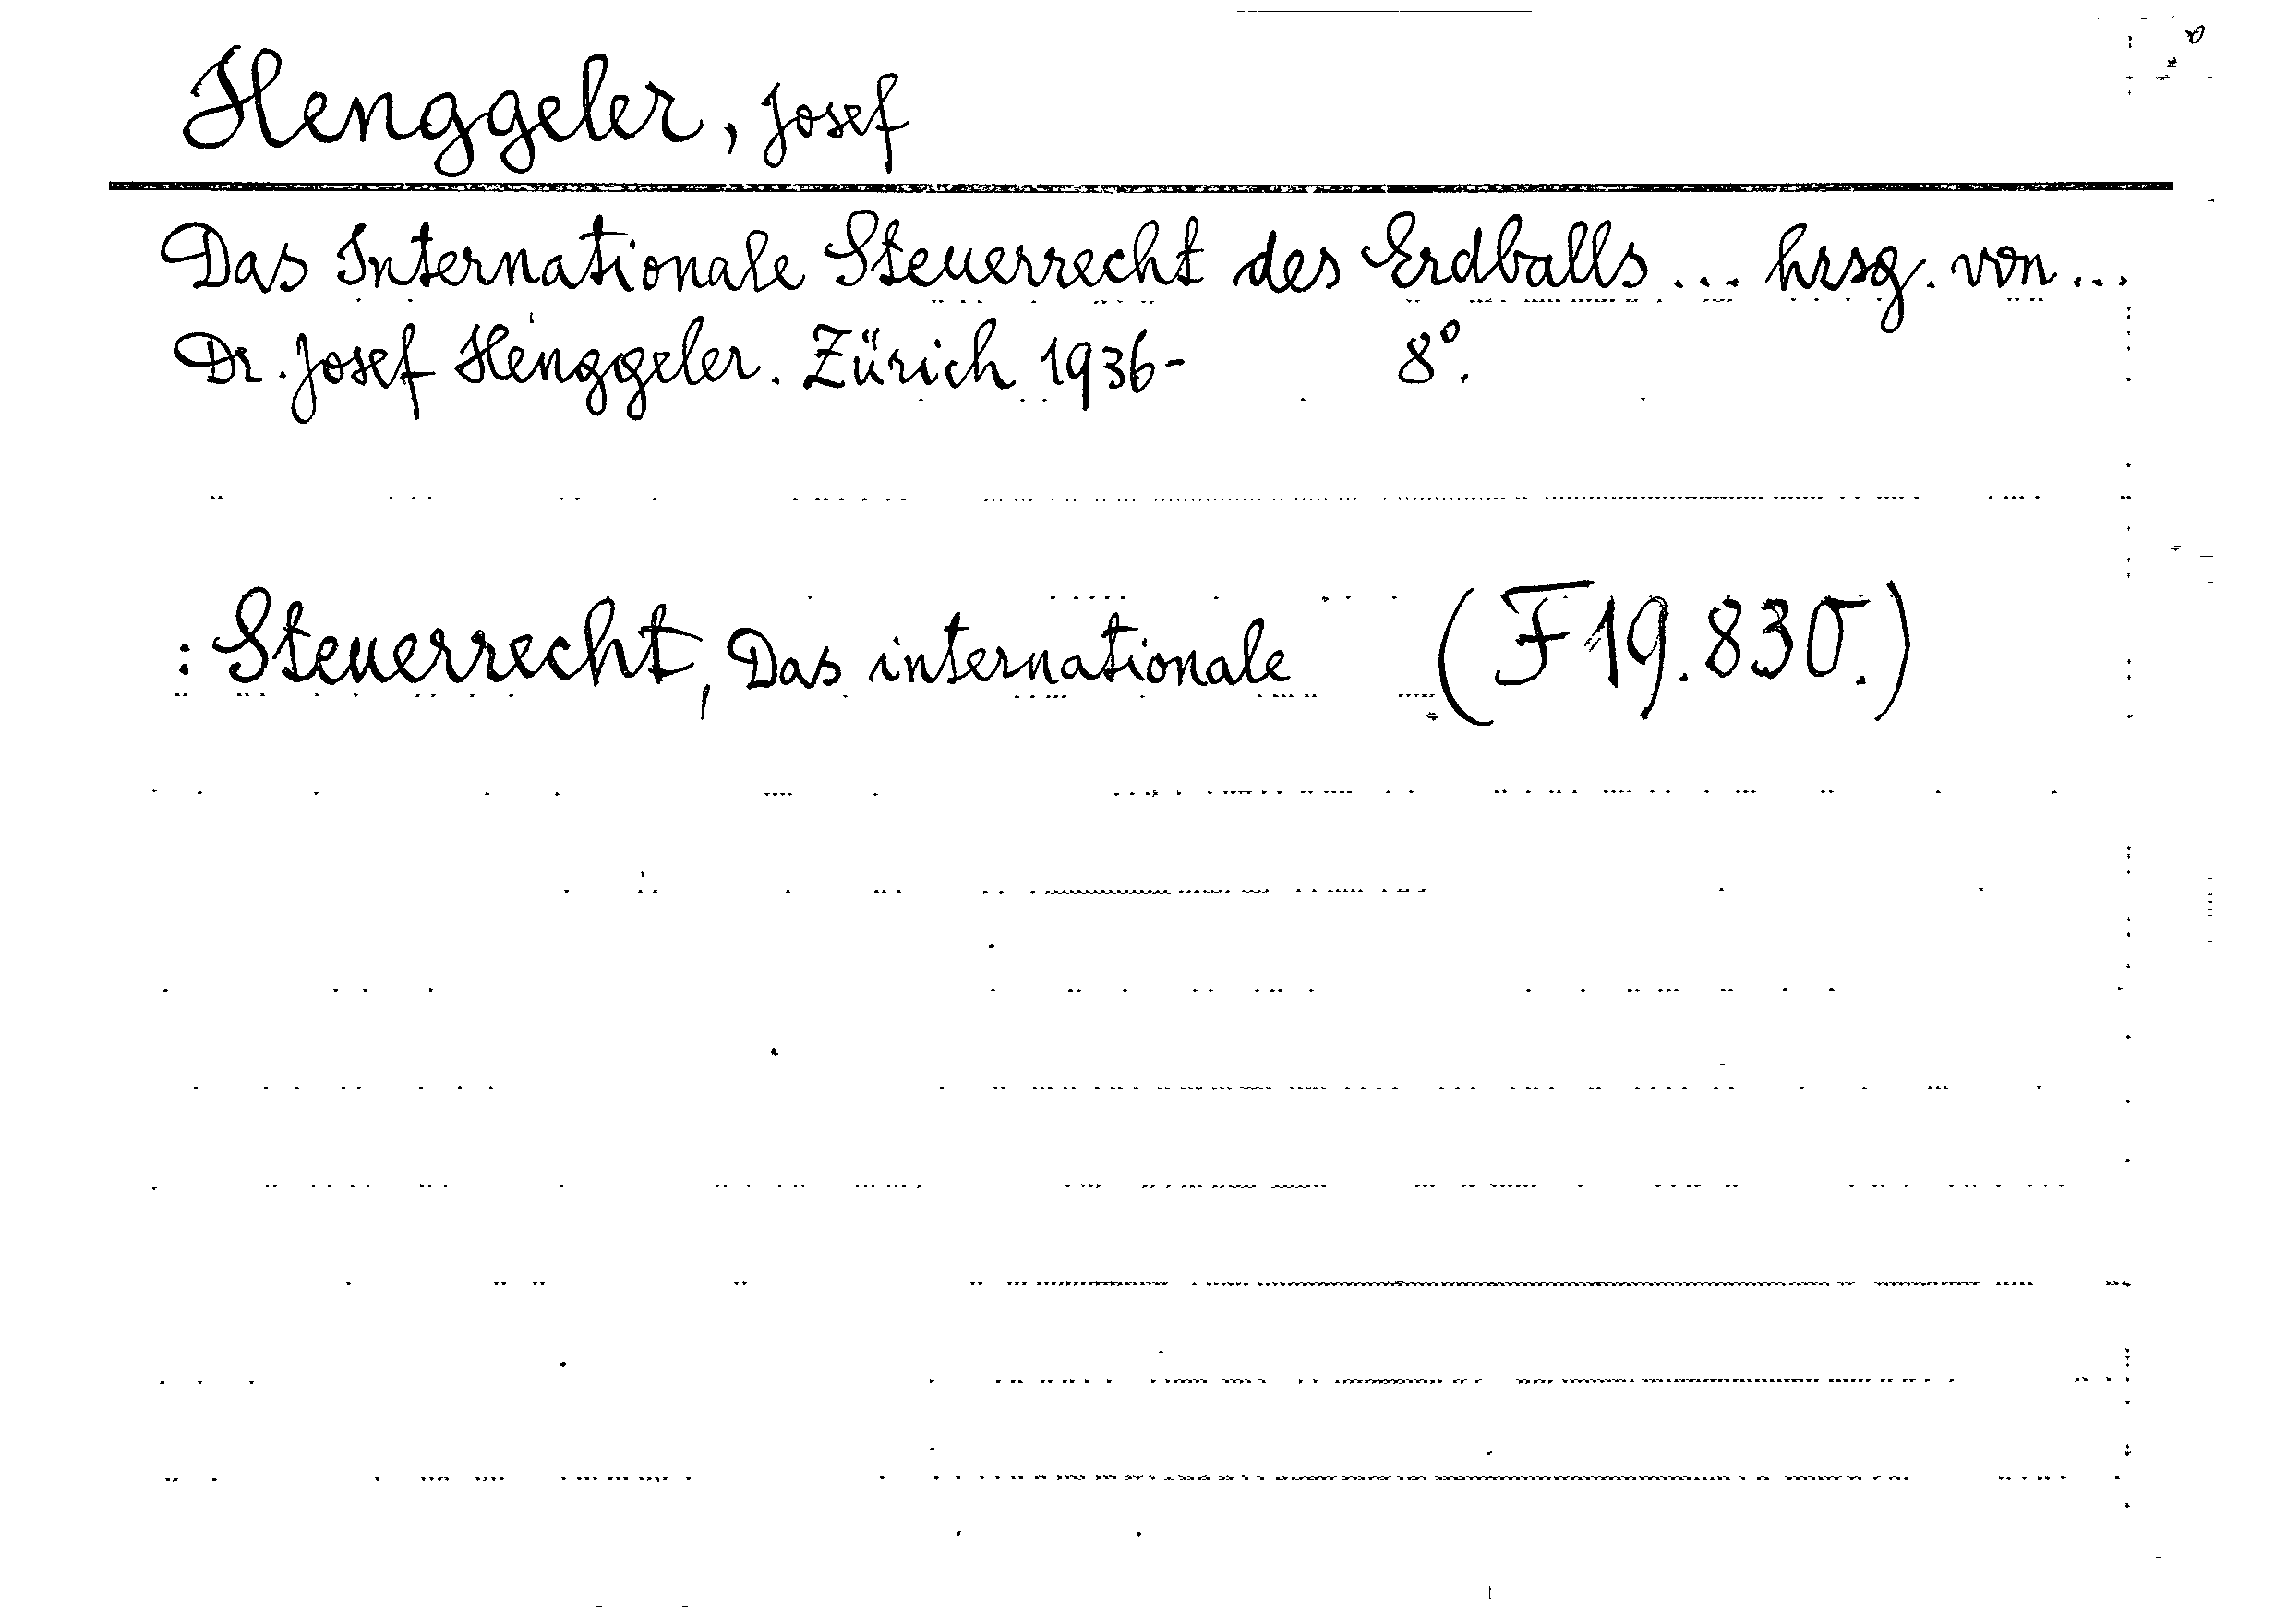 Henggeler, Josef
Das Internationale Steuerrecht des Erdballs... hrsg. von...
Dr. Josef Henggeler. Zürich 1936- 8°.
: Steuerrecht, Das internationale (F 19.830.)